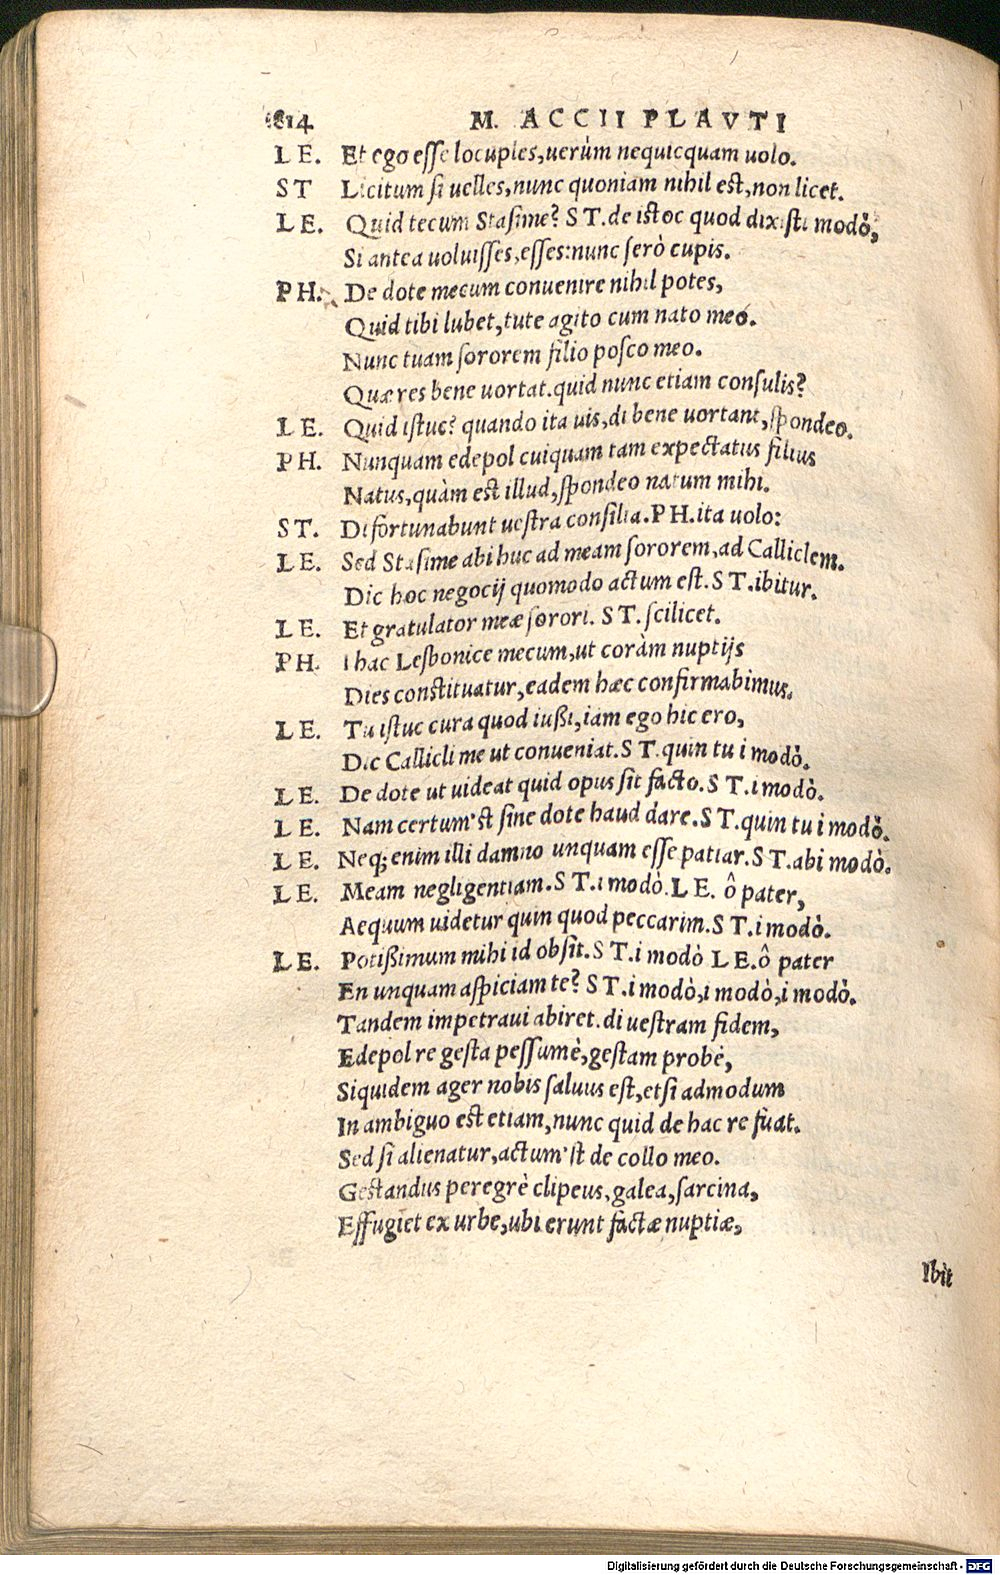 814 M. ACCII PLAVTI
LE. Et ego esse locuples, uerùm nequicquam uolo.
ST Licitum si uelles, nunc quoniam nihil est, non licet.
LE. Quid tecum Stasime? ST. de istoc quod dixisti modò,
Si antea uoluisses, esses: nunc serò cupis.
PH. De dote mecum conuenire nihil potes,
Quid tibi lubet, tute agito cum nato meo.
Nunc tuam sororem filio posco meo.
Quæ res bene uortat. quid nunc etiam consulis?
LE. Quid istuc? quando ita uis, di bene uortant, spondeo.
PH. Nunquam edepol cuiquam tam expectatus filius
Natus, quàm est illud, spondeo natum mihi.
ST. Di fortunabunt uestra consilia. PH. ita uolo:
LE. Sed Stasime abi huc ad meam sororem, ad Calliclem.
Dic hoc negocij quomodo actum est. ST. ibitur.
LE. Et gratulator meæ sorori. ST. scilicet.
PH. I hac Lesbonice mecum, ut coràm nuptijs
Dies constituatur, eadem hæc confirmabimus.
LE. Tu istuc cura quod iußi, iam ego hic ero,
Dic Callicli me ut conueniat. ST. quin tu i modò.
LE. De dote ut uideat quid opus sit facto. ST. i modò.
LE. Nam certum'st sine dote haud dare. ST. quin tu i modò.
LE. Neq; enim illi damno unquam esse patiar. ST. abi modò.
LE. Meam negligentiam. ST. i modò. LE. ô pater,
Aequum uidetur quin quod peccarim. ST. i modò.
LE. Potißimum mihi id obsit. ST. i modò LE. ô pater
En unquam aspiciam te? ST. i modò, i modò, i modò.
Tandem impetraui abiret. di uestram fidem,
Edepol re gesta pessumè, gestam probè,
Siquidem ager nobis saluus est, etsi admodum
In ambiguo est etiam, nunc quid de hac re fuat.
Sed si alienatur, actum'st de collo meo.
Gestandus peregrè clipeus, galea, sarcina,
Effugiet ex urbe, ubi erunt factæ nuptiæ,
Ibit
Digitalisierung gefördert durch die Deutsche Forschungsgemeinschaft - DFG